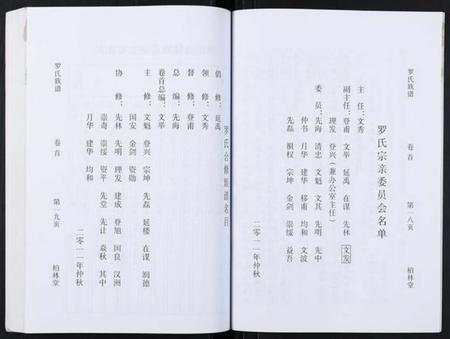 罗氏族谱
卷首
第一八页
柏林堂
罗氏宗亲委员会名单
主 任：文秀
副主任：登甫 文举 延禹 在谋 先林 文发
理发 登兴（兼办公室主任）
委 员：先海 清忠 文魁 文其 先明 先中
仲书 月华 建华 移甫 均和 文波
先磊 祖权 宗坤 金剑 崇绥 益吾
二〇一一年仲秋
罗氏合修族谱名目
倡 修：延禹
领 修：文秀
督 修：登甫
总 编：先海
卷首总编：文举
主 修：文魁 登兴 宗坤 先磊 延楼 在谋 润德
国安 金剑 资勋
协 修：先林 先明 理发 建成 登旭 国良 汉洲
崇奇 崇绥 资平 先堂 先让 焱秋 其中
月华 建华 均和
二〇一一年仲秋
罗氏族谱
卷首
第一九页
柏林堂